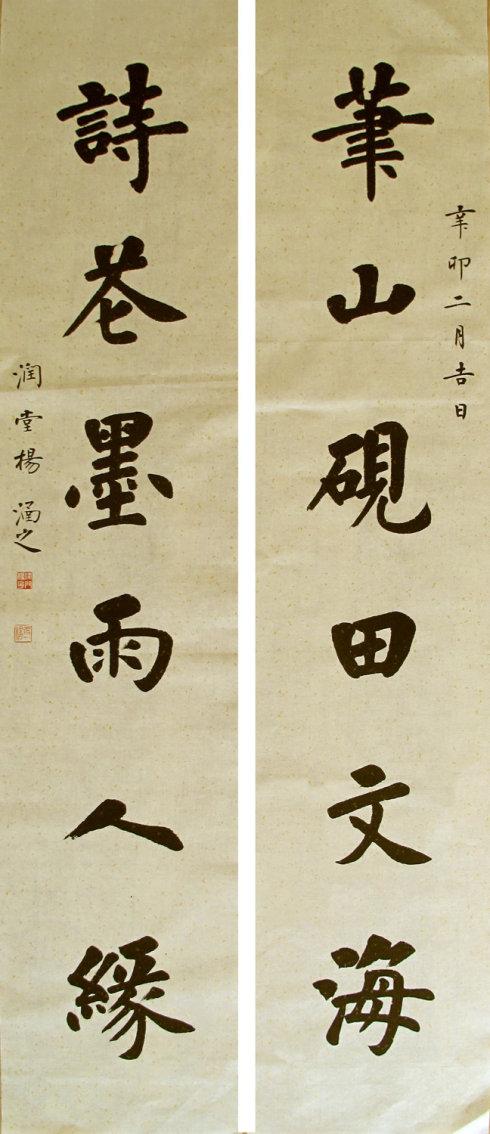 辛卯二月吉日
筆山硯田文海
詩苍墨雨人緣
润堂楊涵之